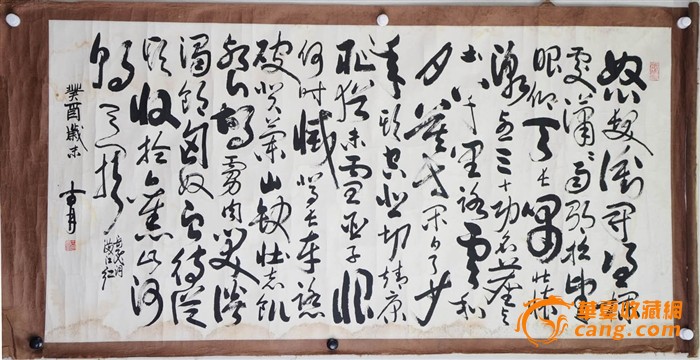 怒髮衝冠憑闌
處瀟瀟雨歇抬望
眼仰天長嘯壯懷
激烈三十功名塵與
土八千里路雲和
月莫等閑白了少
年頭空悲切靖康
恥猶未雪臣子恨
何時滅駕長車踏
破賀蘭山缺壯志飢
餐胡虜肉笑談
渴飲匈奴血待從
頭收拾舊山河
朝天闕
岳飛詞
滿江紅
癸酉歲末
華聲收藏網
cang.com